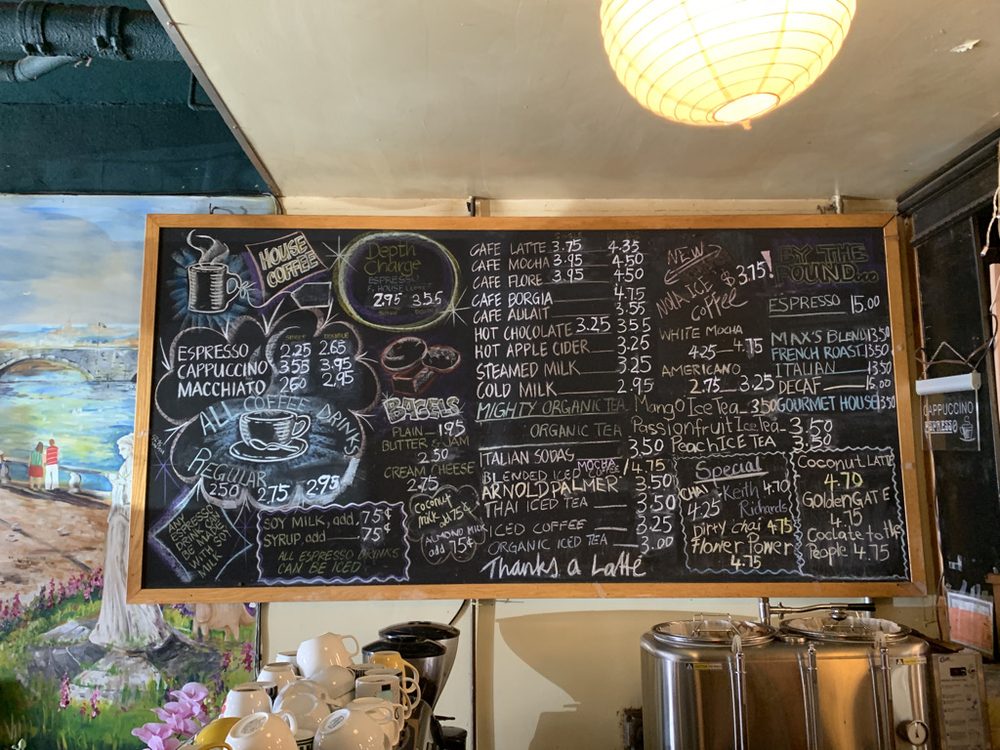 HOUSE
COFFEE
ESPRESSO 2.25 2.65
CAPPUCCINO 3.55 3.95
MACCHIATO 2.60 2.95
ALL COFFEE DRINKS
REGULAR
2.50 2.75 2.95
ANY
ESPRESSO
DRINK CAN
BE MADE
WITH SOY
MILK
Depth
Charge
ESPRESSO
2.95 3.55
BAGELS
PLAIN 1.95
BUTTER & JAM
2.50
CREAM CHEESE
2.75
Coconut
milk +.75¢
ALMOND MILK
add 75¢
SOY MILK, add 75¢
SYRUP, add 75¢
ALL ESPRESSO DRINKS
CAN BE ICED
CAFE LATTE 3.75 4.35
CAFE MOCHA 3.95 4.50
CAFE FLORE 3.95 4.50
CAFE BORGIA 4.75
CAFE AULAIT 3.55
HOT CHOCOLATE 3.25 3.55
HOT APPLE CIDER 3.25
STEAMED MILK 3.25
COLD MILK 2.95
MIGHTY ORGANIC TEA
ORGANIC TEA
ITALIAN SODAS 3.50
BLENDED ICED MOCHA /4.75
ARNOLD PALMER 3.50
THAI ICED TEA 3.50
ICED COFFEE 3.25
ORGANIC ICED TEA 3.00
Thanks a Latte
NEW
NOLA ICE $3.75!
Coffee
WHITE MOCHA
4.25 4.75
AMERICANO
2.75 3.25
Mango Ice Tea 3.50
Passionfruit Ice Tea 3.50
Peach ICE TEA 3.50
Special
CHAI
4.25
Keith 4.70
Richards
Dirty chai 4.75
Flower Power
4.75
Coconut LATTE
4.70
Golden GATE
4.75
Coclate to the
People 4.75
BY THE
POUND...
ESPRESSO 15.00
MAX'S BLEND 13.50
FRENCH ROAST 13.50
ITALIAN 13.50
DECAF 15.00
GOURMET HOUSE 13.50
CAPPUCCINO
ESPRESSO